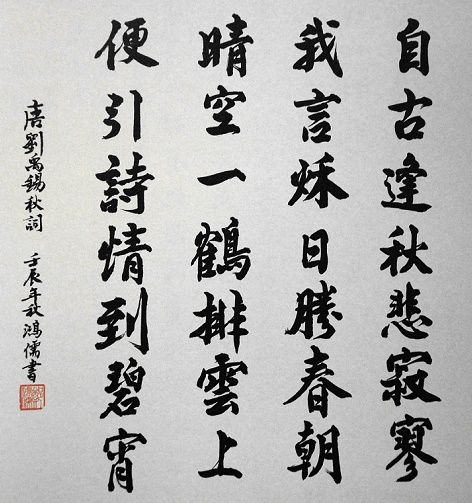 自古逢秋悲寂寥
我言秌日勝春朝
晴空一鶴排雲上
便引詩情到碧宵
唐劉禹錫秋詞 壬辰年秋鴻儒書